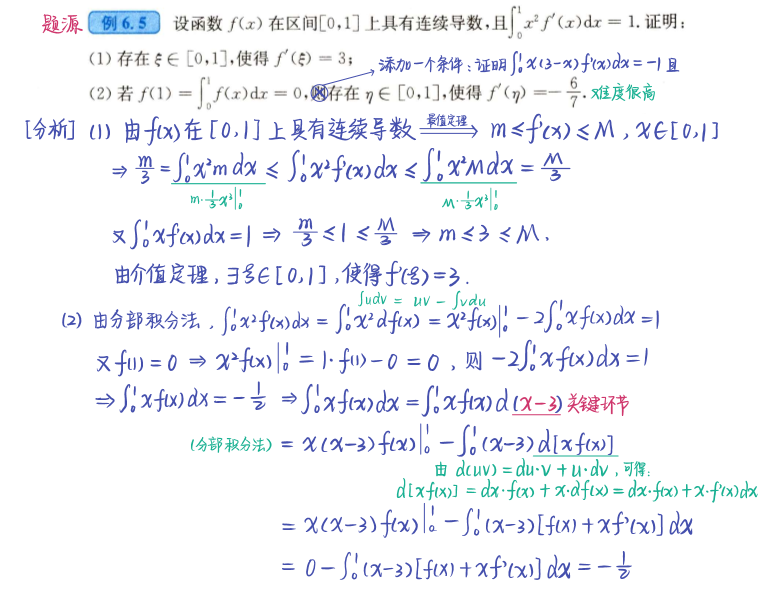 题源 例 6.5 设函数 f(x) 在区间[0,1]上具有连续导数,且∫₀¹x²f'(x)dx = 1. 证明:
(1) 存在 ξ ∈ [0,1],使得 f'(ξ) = 3;
添加一个条件:证明∫₀¹x(3-x)f'(x)dx = -1 且
(2) 若 f(1) = ∫₀¹f(x)dx = 0,则存在 η ∈ [0,1],使得 f'(η) = -6/7. 难度很高
[分析] (1) 由f(x)在[0,1]上具有连续导数 ⟹(最值定理) m≤f'(x)≤M, x∈[0,1]
⇒ m/3 = ∫₀¹x²m dx ≤ ∫₀¹x²f'(x)dx ≤ ∫₀¹x²M dx = M/3
m·1/3x³|₀¹ M·1/3x³|₀¹
又∫₀¹xf'(x)dx=1 ⇒ m/3 ≤ 1 ≤ M/3 ⇒ m ≤ 3 ≤ M.
由介值定理, ∃ξ∈[0,1], 使得f'(ξ)=3.
∫udv = uv - ∫vdu
(2) 由分部积分法, ∫₀¹x²f'(x)dx = ∫₀¹x²df(x) = x²f(x)|₀¹ - 2∫₀¹xf(x)dx = 1
又f(1)=0 ⇒ x²f(x)|₀¹ = 1·f(1)-0 = 0, 则 -2∫₀¹xf(x)dx=1
⇒∫₀¹xf(x)dx = -1/2 ⇒∫₀¹xf(x)dx = ∫₀¹xf(x)d(x-3) 关键环节
(分部积分法) = x(x-3)f(x)|₀¹ - ∫₀¹(x-3)d[xf(x)]
由 d(uv)=du·v+u·dv, 可得:
d[xf(x)] = dx·f(x)+x·df(x) = dx·f(x)+x·f'(x)dx
= x(x-3)f(x)|₀¹ - ∫₀¹(x-3)[f(x)+xf'(x)]dx
= 0-∫₀¹(x-3)[f(x)+xf'(x)]dx = -1/2